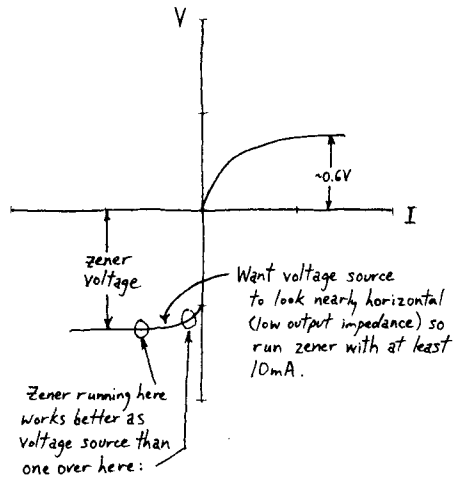 V
~0.6V
I
zener
voltage
Want voltage source
to look nearly horizontal
(low output impedance) so
run zener with at least
10mA.
Zener running here
works better as
voltage source than
one over here: